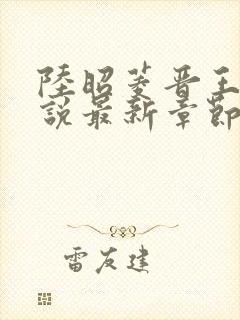 陸昭菱晋王
說最新章節
雷友建